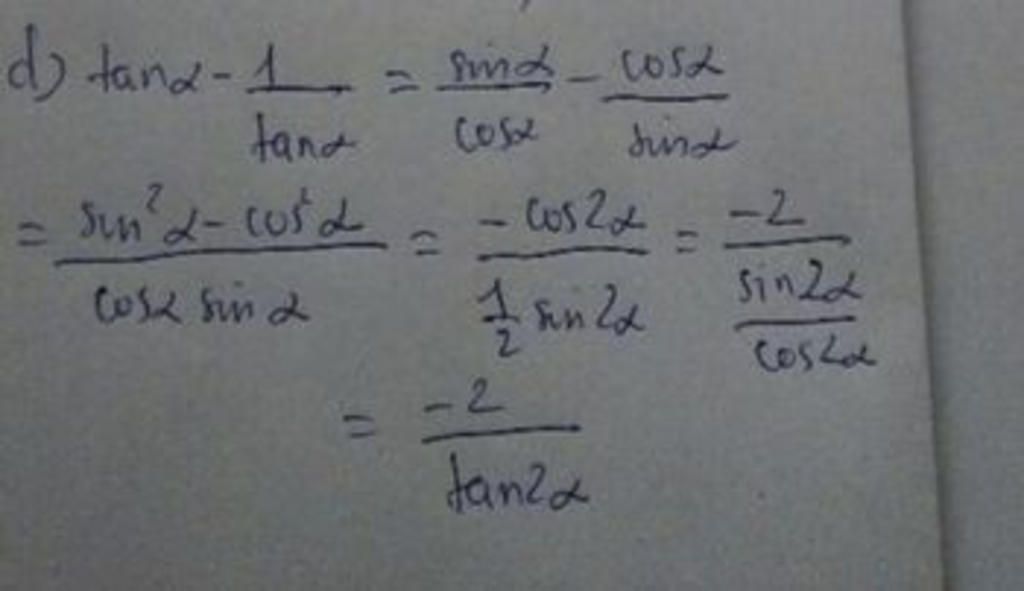 d) tanα - 1/tanα = sinα/cosα - cosα/sinα
= (sin²α - cos²α)/(cosα sinα) = (-cos2α)/(1/2 sin2α) = -2/(sin2α/cos2α)
= -2/tan2α